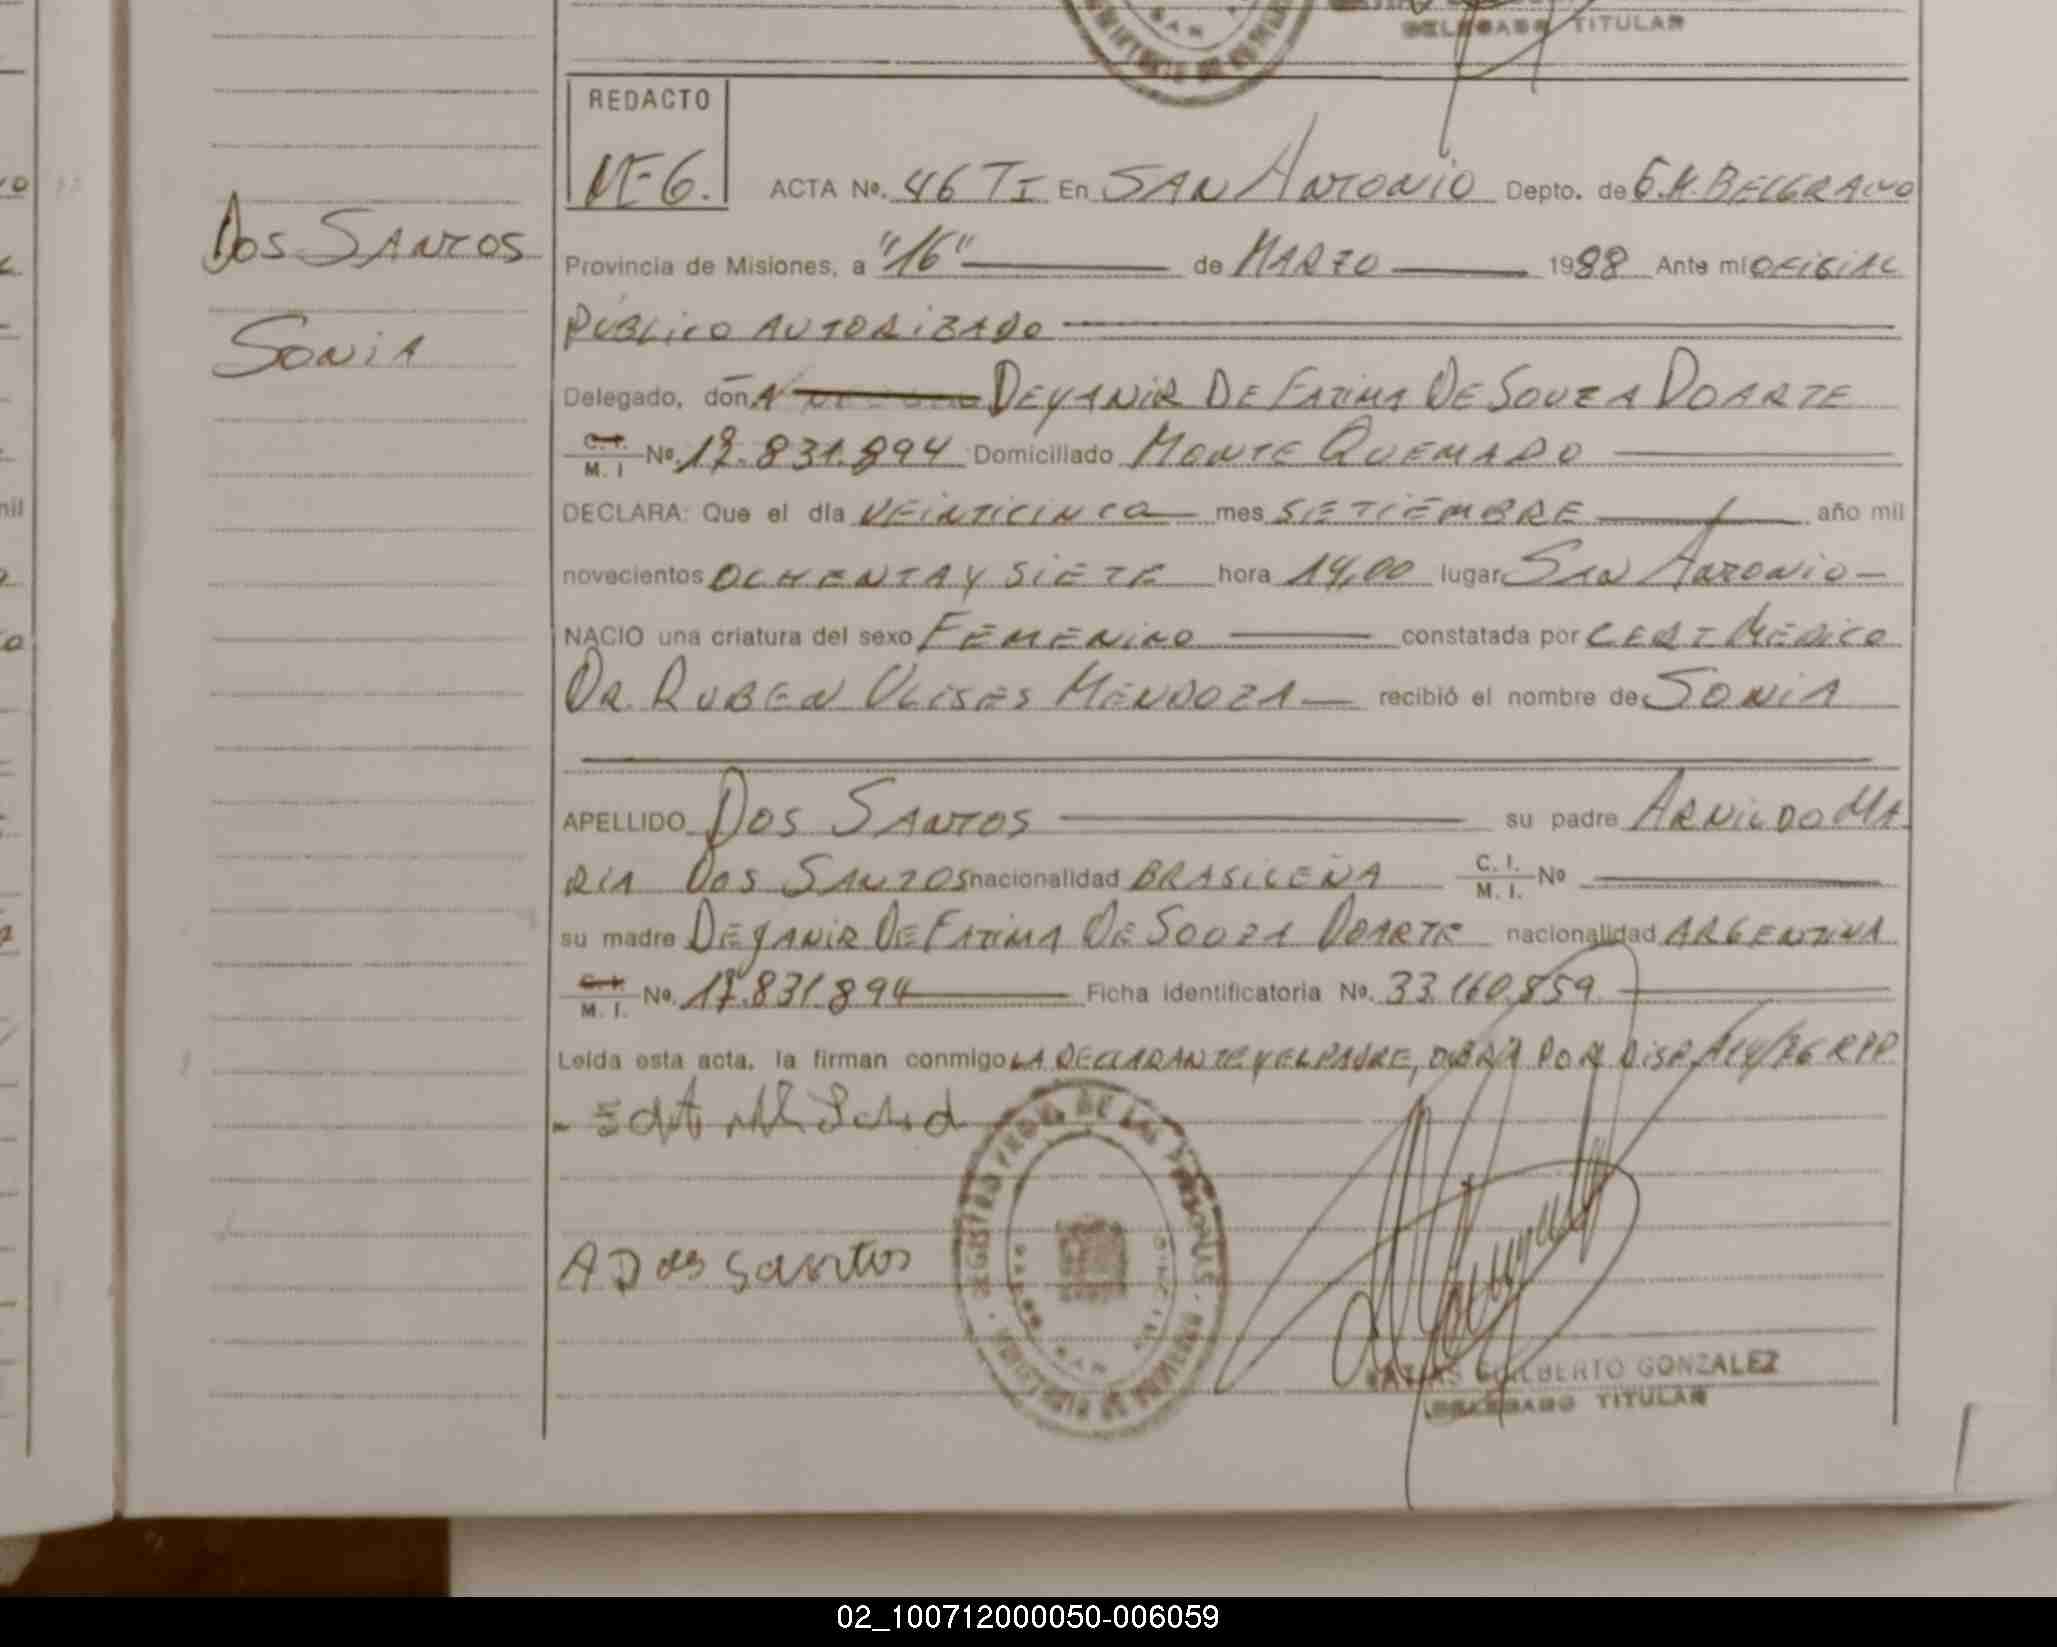 DELEGADO TITULAR
REDACTO
ACTA Nº. 46 TI En SAN ANTONIO Depto. de G.M. BELGRANO
DOS SANTOS
Provincia de Misiones, a "16" de MARZO 1988 Ante mi OFICIAL
PUBLICO AUTORIZADO
SONIA
Delegado, donA DEYANIR DE FATIMA DE SOUZA DOARTE
C.I. M. I Nº. 17.831.894 Domiciliado MONTE QUEMADO
DECLARA: Que el día VEINTICINCO mes SETIEMBRE año mil
novecientos OCHENTA Y SIETE hora 14,00 lugar SAN ANTONIO
NACIO una criatura del sexo FEMENINO constatada por CERT MEDICO
DR. RUBEN ULISES MENDOZA recibió el nombre de SONIA
APELLIDO DOS SANTOS su padre ARNILDO MA
RIA DOS SANTOS nacionalidad BRASILEÑA C. I. M. I. Nº
su madre DEYANIR DE FATIMA DE SOUZA DOARTE nacionalidad ARGENTINA
C. I. M. I. Nº. 17.831.894 Ficha identificatoria Nº. 33.160.859
Leída esta acta, la firman conmigo LA DECLARANTE Y EL PADRE, OBRA POR DISP. RPP
A Dos Santos
GILBERTO GONZALEZ
DELEGADO TITULAR
02_100712000050-006059